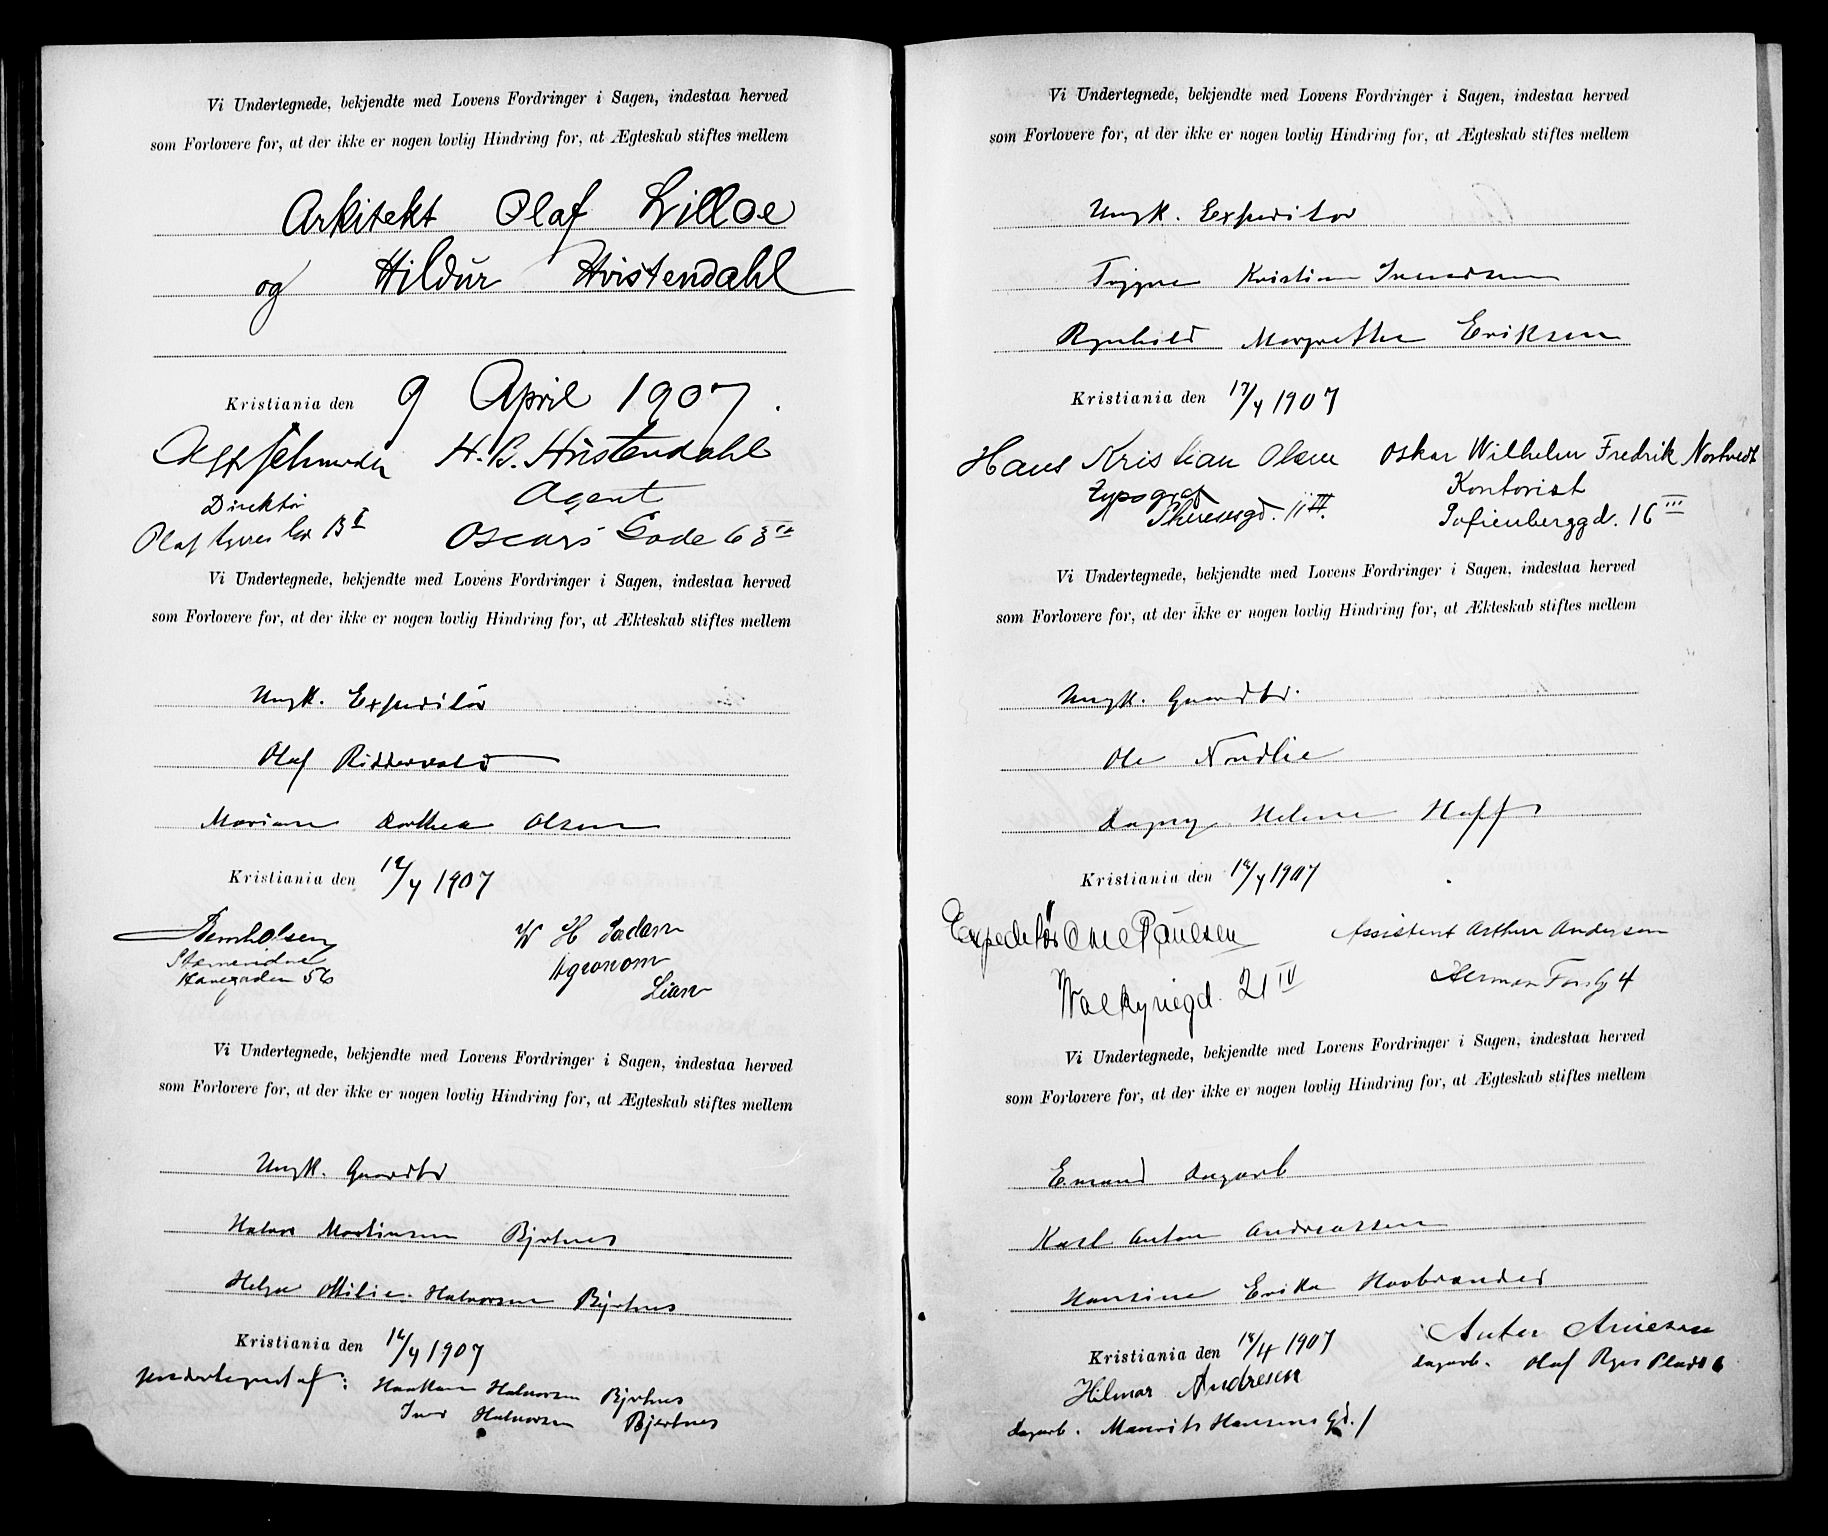 Vi Undertegnede, bekjendte med Lovens Fordringer i Sagen, indestaa herved
som Forlovere for, at der ikke er nogen lovlig Hindring for, at Ægteskab stiftes mellem
Arkitekt Olaf Lilloe
og Hildur Hvistendahl
Kristiania den 9 April 1907.
H. B. Hvistendahl
Direktør
Agent
Olaf
Oscars Gade 63
Vi Undertegnede, bekjendte med Lovens Fordringer i Sagen, indestaa herved
som Forlovere for, at der ikke er nogen lovlig Hindring for, at Ækteskab stiftes mellem
Ungk. Expeditør
Olaf Riddervold
Mariane Dorthea Olsen
Kristiania den 12/4 1907
W H
56
Agronom
Lian
Vi Undertegnede, bekjendte med Lovens Fordringer i Sagen, indestaa herved
som Forlovere for, at der ikke er nogen lovlig Hindring for, at Ægteskab stiftes mellem
Ungk. Gaardbr
Halvor Martinsen Bjertnes
Helga Otilie Halvorsen Bjertnes
Kristiania den 16/4 1907
Undertegnet af: Haakon Halvorsen Bjertnes
Halvorsen Bjertnes
Vi Undertegnede, bekjendte med Lovens Fordringer i Sagen, indestaa herved
som Forlovere for, at der ikke er nogen lovlig Hindring for, at Ægteskab stiftes mellem
Ungk. Expeditør
Trygve Kristian Svendsen
Ragnhild Margrethe Eriksen
Kristiania den 17/4 1907
Hans Kristian Olsen Oskar Wilhelm Fredrik Nortvedt
Typograf Kontorist
Theresesgd. 11 III. Sofienberggd. 16 III
Vi Undertegnede, bekjendte med Lovens Fordringer i Sagen, indestaa herved
som Forlovere for, at der ikke er nogen lovlig Hindring for, at Ækteskab stiftes mellem
Ungk. Gaardbr.
Ole Nordlie
Dagny Helene Hoff
Kristiania den 18/4 1907
Expeditør Paulsen Assistent Arthur Andersen
Walkyriegd. 21 IV Herman Foss g 4
Vi Undertegnede, bekjendte med Lovens Fordringer i Sagen, indestaa herved
som Forlovere for, at der ikke er nogen lovlig Hindring for, at Ægteskab stiftes mellem
Enmand Dagarb
Karl Anton Andreassen
Hansine Erika Haabrandsd
Kristiania den 18/4 1907 Anton Arnesen
Hilmar Andresen dagarb. Olaf Ryes Plads 6
dagarb. Maurits Hansens Gd. 1